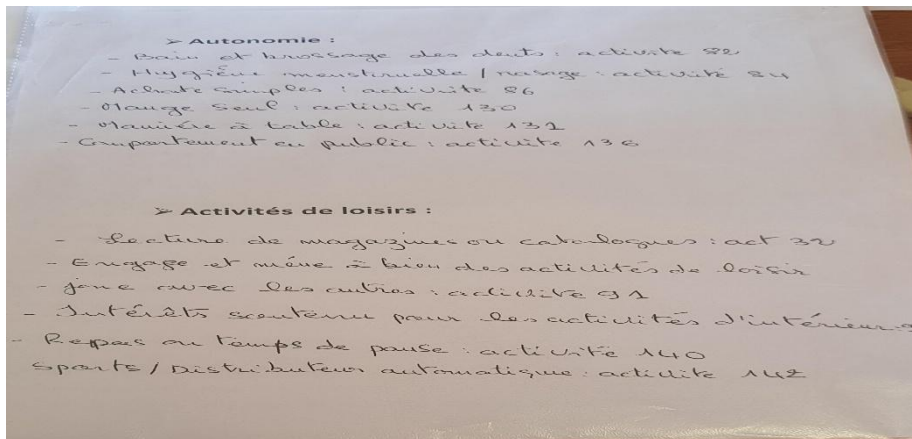 ➢ Autonomie :
- Bain et brossage des dents : activité 82
- Hygiène menstruelle / rasage : activité 84
- Achats simples : activité 86
- Mange seul : activité 130
- Manière à table : activité 132
- Comportement en public : activité 136
➢ Activités de loisirs :
- Lecture de magazines ou catalogues : act 32
- Engage et mène à bien des activités de loisir
- joue avec les autres : activité 91
- Intérêts soutenu pour les activités d'intérieur
- Repas ou temps de pause : activité 140
Sports / Distributeur automatique : activité 142